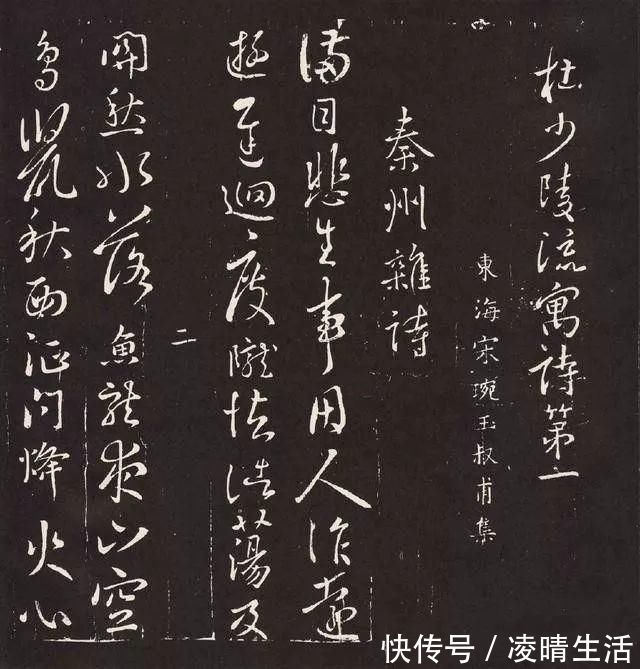 杜少陵流寓詩第一
東海宋琬玉叔甫集
秦州雜詩
滿目悲生事因人作遠
遊遲迴度隴怯浩蕩及
二
關愁水落魚龍夜山空
鳥鼠秋西征問烽火心
快传号 / 凌晴生活